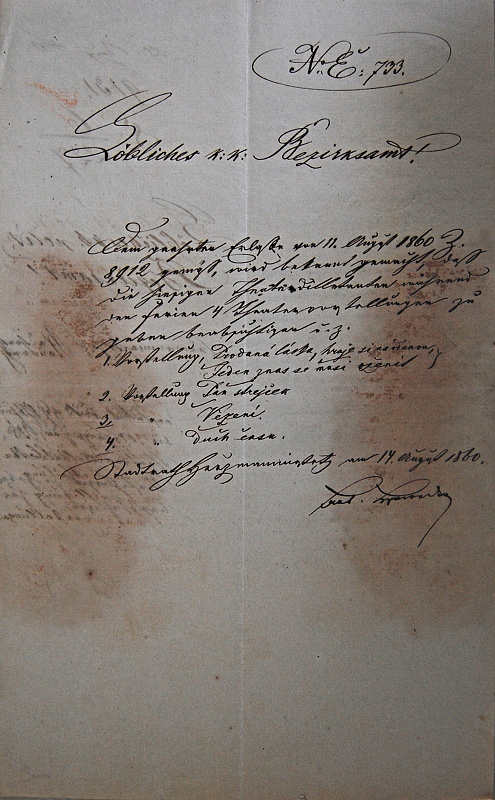 N. E.: 733.
Löbliches k: k: Bezirksamt!
Dem geehrten Erlaße vom 11. August 1860 Z.
8912 gemäß, wird bekannt gemacht, daß
die hiesigen Theaterdilettanten während
den Ferien 4 Theatervorstellungen zu
geben beabsichtigen u. z.
1. Vorstellung, Prodaná láska,
Jeden z nas se musí oženit
2. Vorstellung Pan strejček
3. " Vězení.
4. " Duch času.
Stadtrath am 14 August 1860.